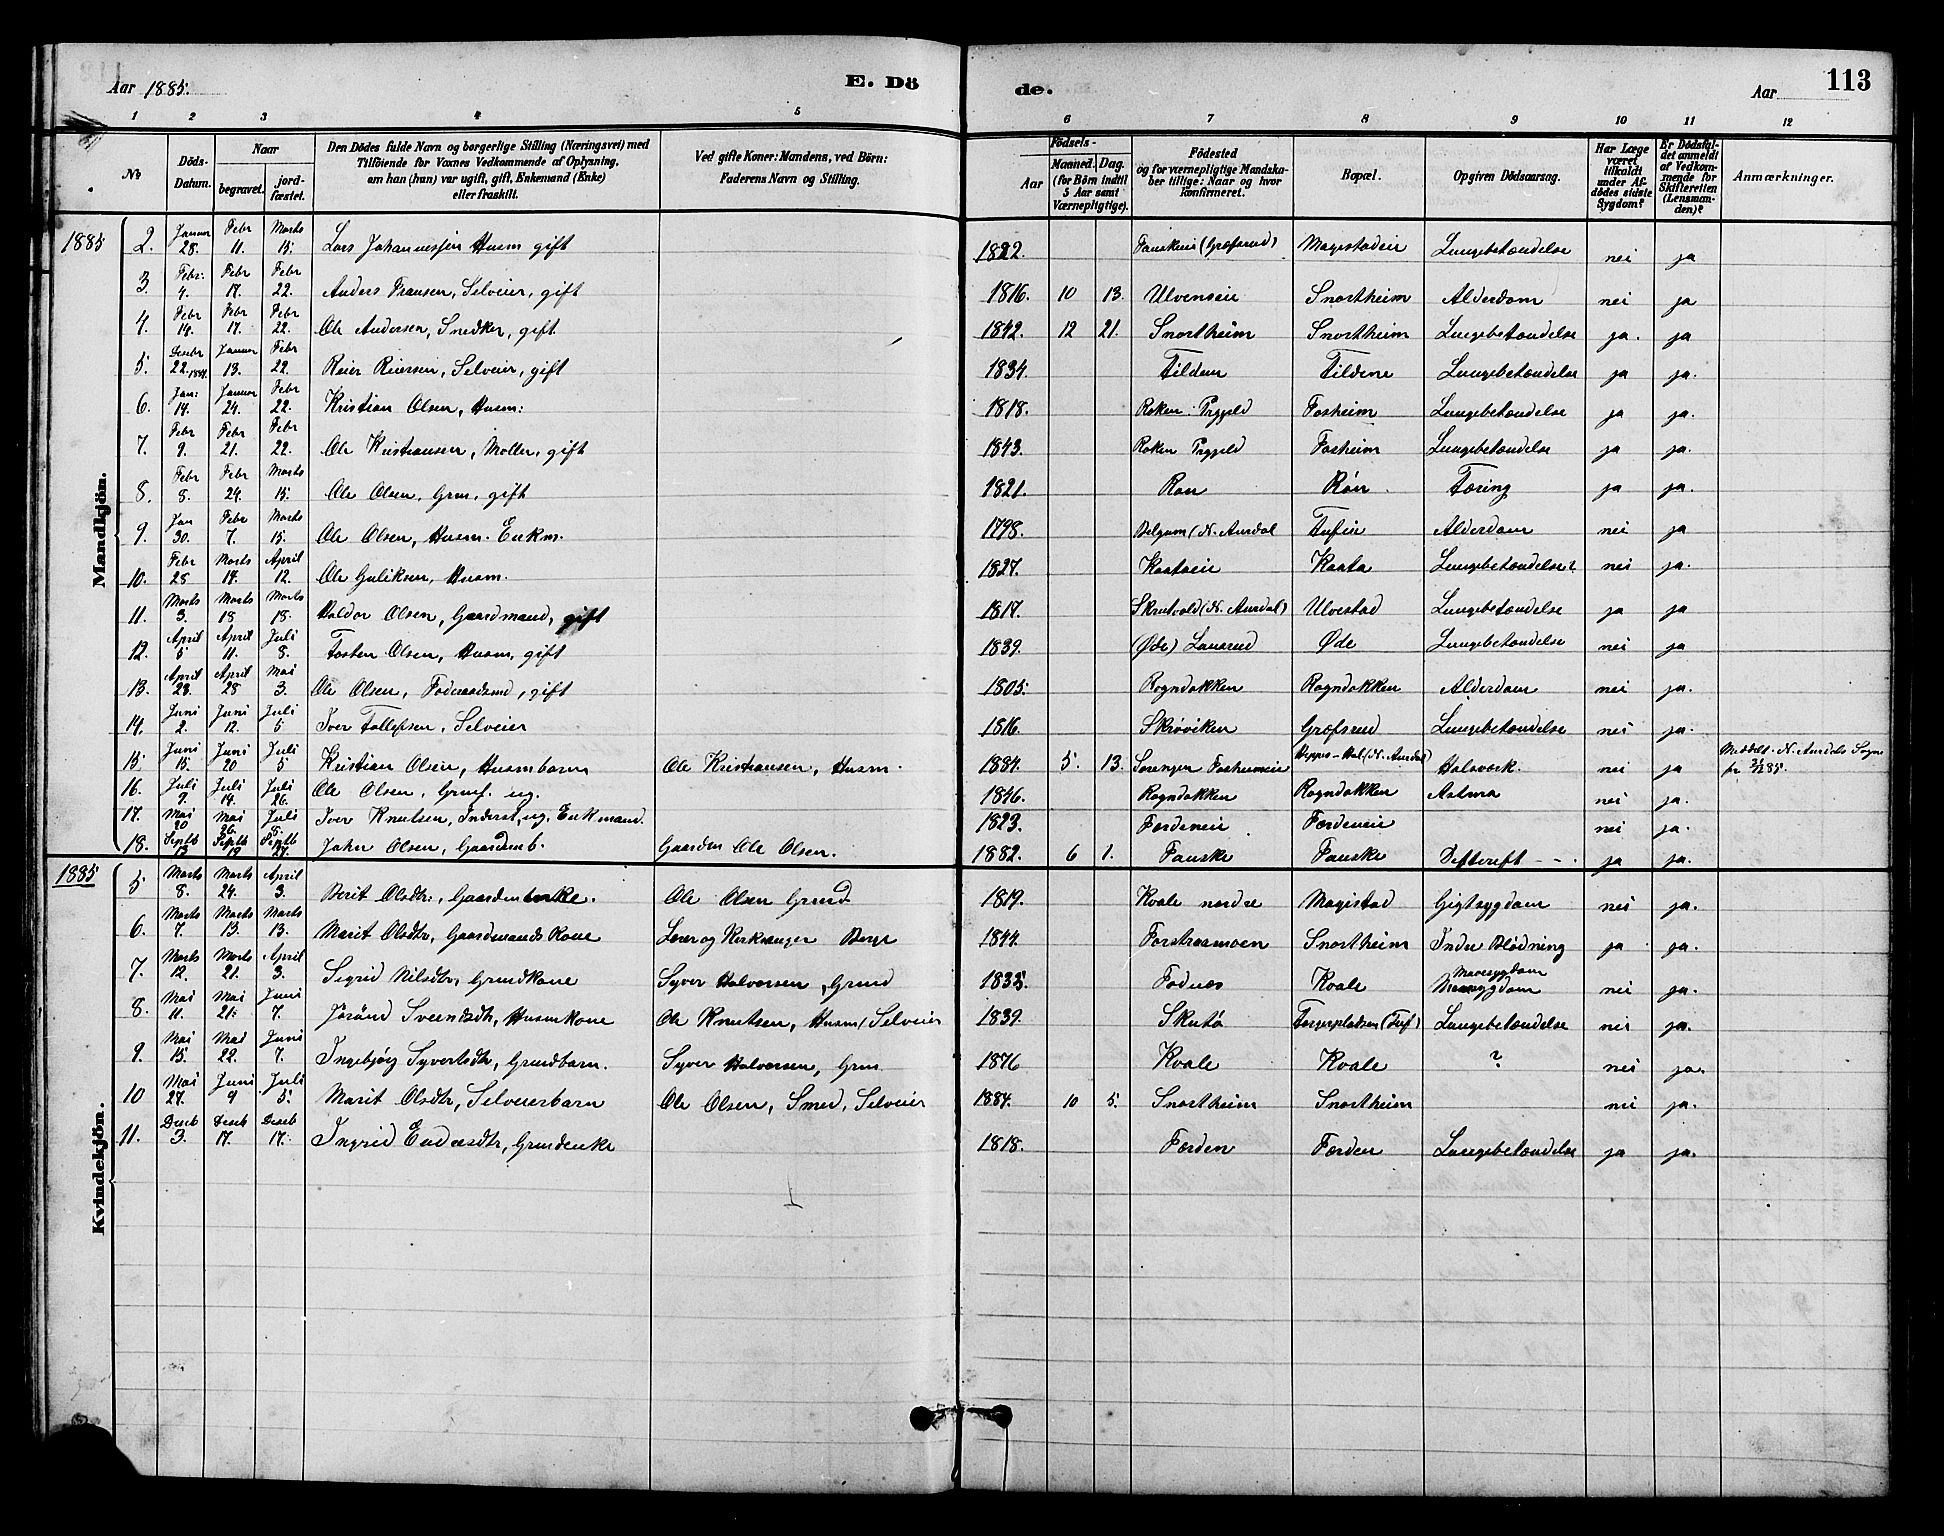 Aar 1885. E. Döde. Aar 113
1 2 3 4 5 6 7 8 9 10 11 12
No
Döds-Datum.
Naar
begravet.
jordfæstet.
Den Dödes fulde Navn og borgerlige Stilling (Næringsvei) med
Tilföiende for Voxnes Vedkommende af Oplysning,
om han (hun) var ugift, gift, Enkemand (Enke)
eller fraskilt.
Ved gifte Koner: Mandens, ved Börn:
Faderens Navn og Stilling.
Födsels-
Aar
Maaned. Dag.
(for Börn indtil
5 Aar samt
Værnepligtige).
Födested
og for værnepligtige Mandskaber tillige: Naar og hvor
konfirmeret.
Bopæl.
Opgiven Dödsaarsag.
Har Læge
været
tilkaldt
under Afdödes sidste
Sygdom?
Er Dödsfaldet anmeldt
af Vedkommende for
Skifteretten
(Lensmanden)?
Anmærkninger.
Mandkjön.
1885 2. Januar 28. Febr 11. Marts 15. Lars Johannesen Husm gift 1822. Fauskeie (Græfsrud) Magistadeie Lungebetændelse nei ja
3. Febr: 4. Febr 17. Febr 22. Anders Fransen, Selveier, gift 1816. 10 13. Ulvenseie Snortheim Alderdom nei ja
4. Febr 14. Febr 17. Febr 22. Ole Andersen, Snedker, gift 1842. 12 21. Snortheim Snortheim Lungebetændelse ja. ja
5. Desebr 22. 1884. Januar 13. Febr 22. Reier Reiersen, Selveier, gift 1834. Tildem Tildene Lungebetændelse ja ja.
6. Jan: 14. Januar 24. Febr 22. Kristian Olsen, Husm: 1818. Roken Prgjeld Fosheim Lungebetændelse ja ja.
7. Febr 9. Febr 21. Febr 22. Ole Kristiansen, Møller, gift 1843. Roken Prgjeld Fosheim Lungebetændelse ja ja.
8. Febr 8. Febr 24. Marts 15. Ole Olsen, Grm, gift 1821. Røn Røn. Tæring ja ja.
9. Jan 30. Febr 7. Marts 15. Ole Olsen, Husm. Enkm. 1798. Belgum (N. Aurdal Tufeie Alderdom nei ja
10. Febr 28 Marts 14. April 12. Ole Guliksen, Husm. 1827. Kaataeie Kaata Lungebetændelse? nei ja.
11. Marts 3. Marts 18 Marts 18. Haldor Olsen, Gaardmand, gift 1817. Skrutvold (N. Aurdal) Ulvestad Lungebetændelse ja ja
12. April 5 April 11. Juli 8. Tosten Olsen, Husm, gift 1839. (Øde) Lausrud Øde Lungebetændelse nei ja
13. April 23. April 28 Mai 3. Ole Olsen, Føderaadsmd, gift 1805. Rogndokken Rogndokken Alderdom nei ja.
14. Juni 2. Juni 12. Juli 5 Iver Tollefsen, Selveier 1816. Skrøviken Græfsrud Lungebetændelse nei ja.
15. Juni 15. Juni 20 Juli 5 Kristian Olsen, Husmbarn Ole Kristiansen, Husm. 1884. 5. 13. Fosheimeie (N. Aurdal) Halsværk. nei ja Meddelt N. Aurdals Sogn
16. Juli 9. Juli 14. Juli 26. Ole Olsen, Grmf. ug. 1846. Rogndokken Rogndokken Astma nei ja.
17. Mai 20 Mai 26. Juli 5. Iver Knutsen, Inderst, ug. Enkmand. 1823. Fordeneie Førdeneie nei ja.
18. Septb 13 Septb 19 Septb 27. John Olsen, Gaardmb. Gaardm Ole Olsen. 1882. 6 1. Fauske Fauske Difterift - - . ja ja.
Kvindekjön.
1885 5 Marts 8. Marts 24. April 3. Berit Olsdtr:, Gaardmenke. Ole Olsen Grmd 1819. Kvale nordre Magistad Gigtsygdom nei ja.
6. Marts 7 Marts 13. Marts 13. Marit Olsdtr, Gaardmands Kone Lærer og Kirksanger Berge 1844. Forstrasmoen Snortheim Indre Blødning ja ja.
7. Marts 12. Marts 21. April 3. Sigrid Nilsdtr, Grmdkone Syver Halvorsen, Grmd 1835. Fodnæs Kvale Mavesygdom nei ja.
8. Mai 11. Mai 21: Juni 7. Jørånd Sveinsdtr, Husmkone Ole Knutsen, Husm/Selveier 1839. Skutø (Tuf) Lungebetændelse nei ja.
9. Mai 15. Mai 22. Juni 7. Ingebjørg Syvertsdtr, Grmdbarn. Syver Halvorsen, Grm. 1876 Kvale Kvale ? nei ja.
10 Mai 27. Juni 9 Juli 5. Marit Olsdtr, Selveierbarn Ole Olsen, Smed, Selveier 1884. 10 5. Snortheim Snortheim nei ja.
11. Deseb 3. Deseb 17. Deseb 17. Ingrid Endresdtr, Grmdenke 1818. Førden Førden Lungebetændelse ja ja.